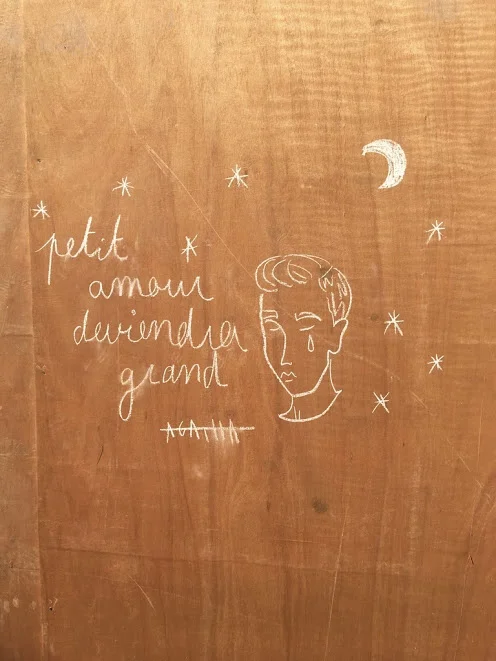 petit
amour
deviendra
grand
AGATHA